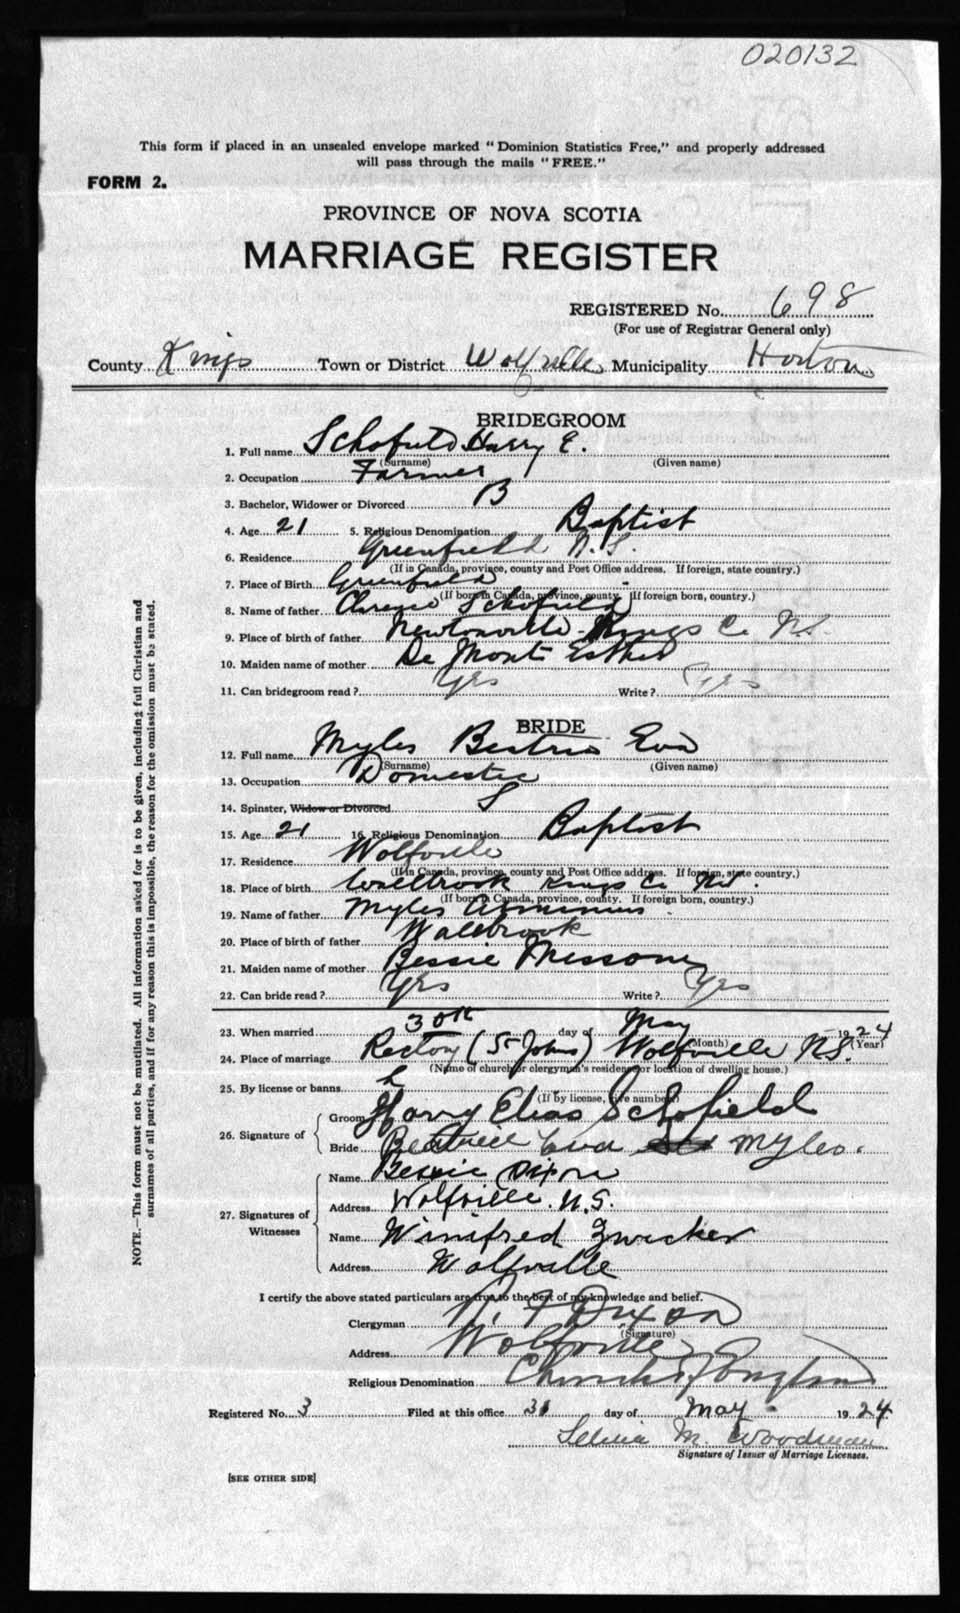 020132
This form if placed in an unsealed envelope marked "Dominion Statistics Free," and properly addressed
will pass through the mails "FREE."
FORM 2.
PROVINCE OF NOVA SCOTIA
MARRIAGE REGISTER
REGISTERED No. 698
(For use of Registrar General only)
County Kings Town or District Wolfville Municipality Horton
BRIDEGROOM
1. Full name Schofield Harry E.
(Surname) (Given name)
2. Occupation Farmer
3. Bachelor, Widower or Divorced B
4. Age 21 5. Religious Denomination Baptist
6. Residence Greenfield N.S.
(If in Canada, province, county and Post Office address. If foreign, state country.)
7. Place of Birth Greenfield
(If born in Canada, province, county. If foreign born, country.)
8. Name of father Clarence Schofield
9. Place of birth of father Newtonville Kings Co N.S.
10. Maiden name of mother De Mont Esther
11. Can bridegroom read? Yes Write? Yes
BRIDE
12. Full name Myles Eva
(Surname) (Given name)
13. Occupation Domestic
14. Spinster, Widow or Divorced S
15. Age 21 16. Religious Denomination Baptist
17. Residence Wolfville
(If in Canada, province, county and Post Office address. If foreign, state country.)
18. Place of birth Wallbrook Kings Co N.S.
(If born in Canada, province, county. If foreign born, country.)
19. Name of father Myles
20. Place of birth of father Wallbrook
21. Maiden name of mother Bessie
22. Can bride read? Yes Write? Yes
23. When married 30th day of May 1924
(Month) (Year)
24. Place of marriage Rectory (St Johns) Wolfville N.S.
(Name of church or clergyman's residence or location of dwelling house.)
25. By license or banns L
(If by license, give number)
26. Signature of Groom Harry Elias Schofield
Bride Beatrice Eva Myles.
27. Signatures of Witnesses
Name Bessie Dixon
Address Wolfville. N.S.
Name Winifred Zwicker
Address Wolfville
I certify the above stated particulars are true to the best of my knowledge and belief.
Clergyman R. F Dixon
(Signature)
Address Wolfville
Religious Denomination Church of England
Registered No. 3 Filed at this office 31 day of May 1924
M. Woodman
Signature of Issuer of Marriage Licenses.
[SEE OTHER SIDE]
NOTE.—This form must not be mutilated. All information asked for is to be given, including full Christian and
surnames of all parties, and if for any reason this is impossible, the reason for the omission must be stated.